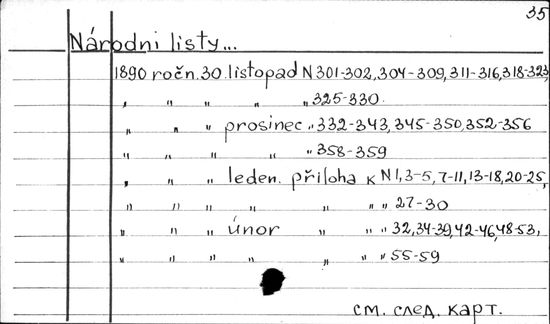 35
Národni listy...
1890 ročn. 30. listopad N 301-302, 304-309, 311-316, 318-323,
„ „ „ „ „ 325-330.
„ „ „ prosinec „ 332-343, 345-350, 352-356
„ „ „ „ „ 358-359
„ „ „ leden. příloha k N 1, 3-5, 7-11, 13-18, 20-25,
„ „ „ „ „ „ „ 27-30
„ „ „ únor „ „ „ 32, 34-39, 42-46, 48-53,
„ „ „ „ „ „ „ 55-59
см. след. карт.